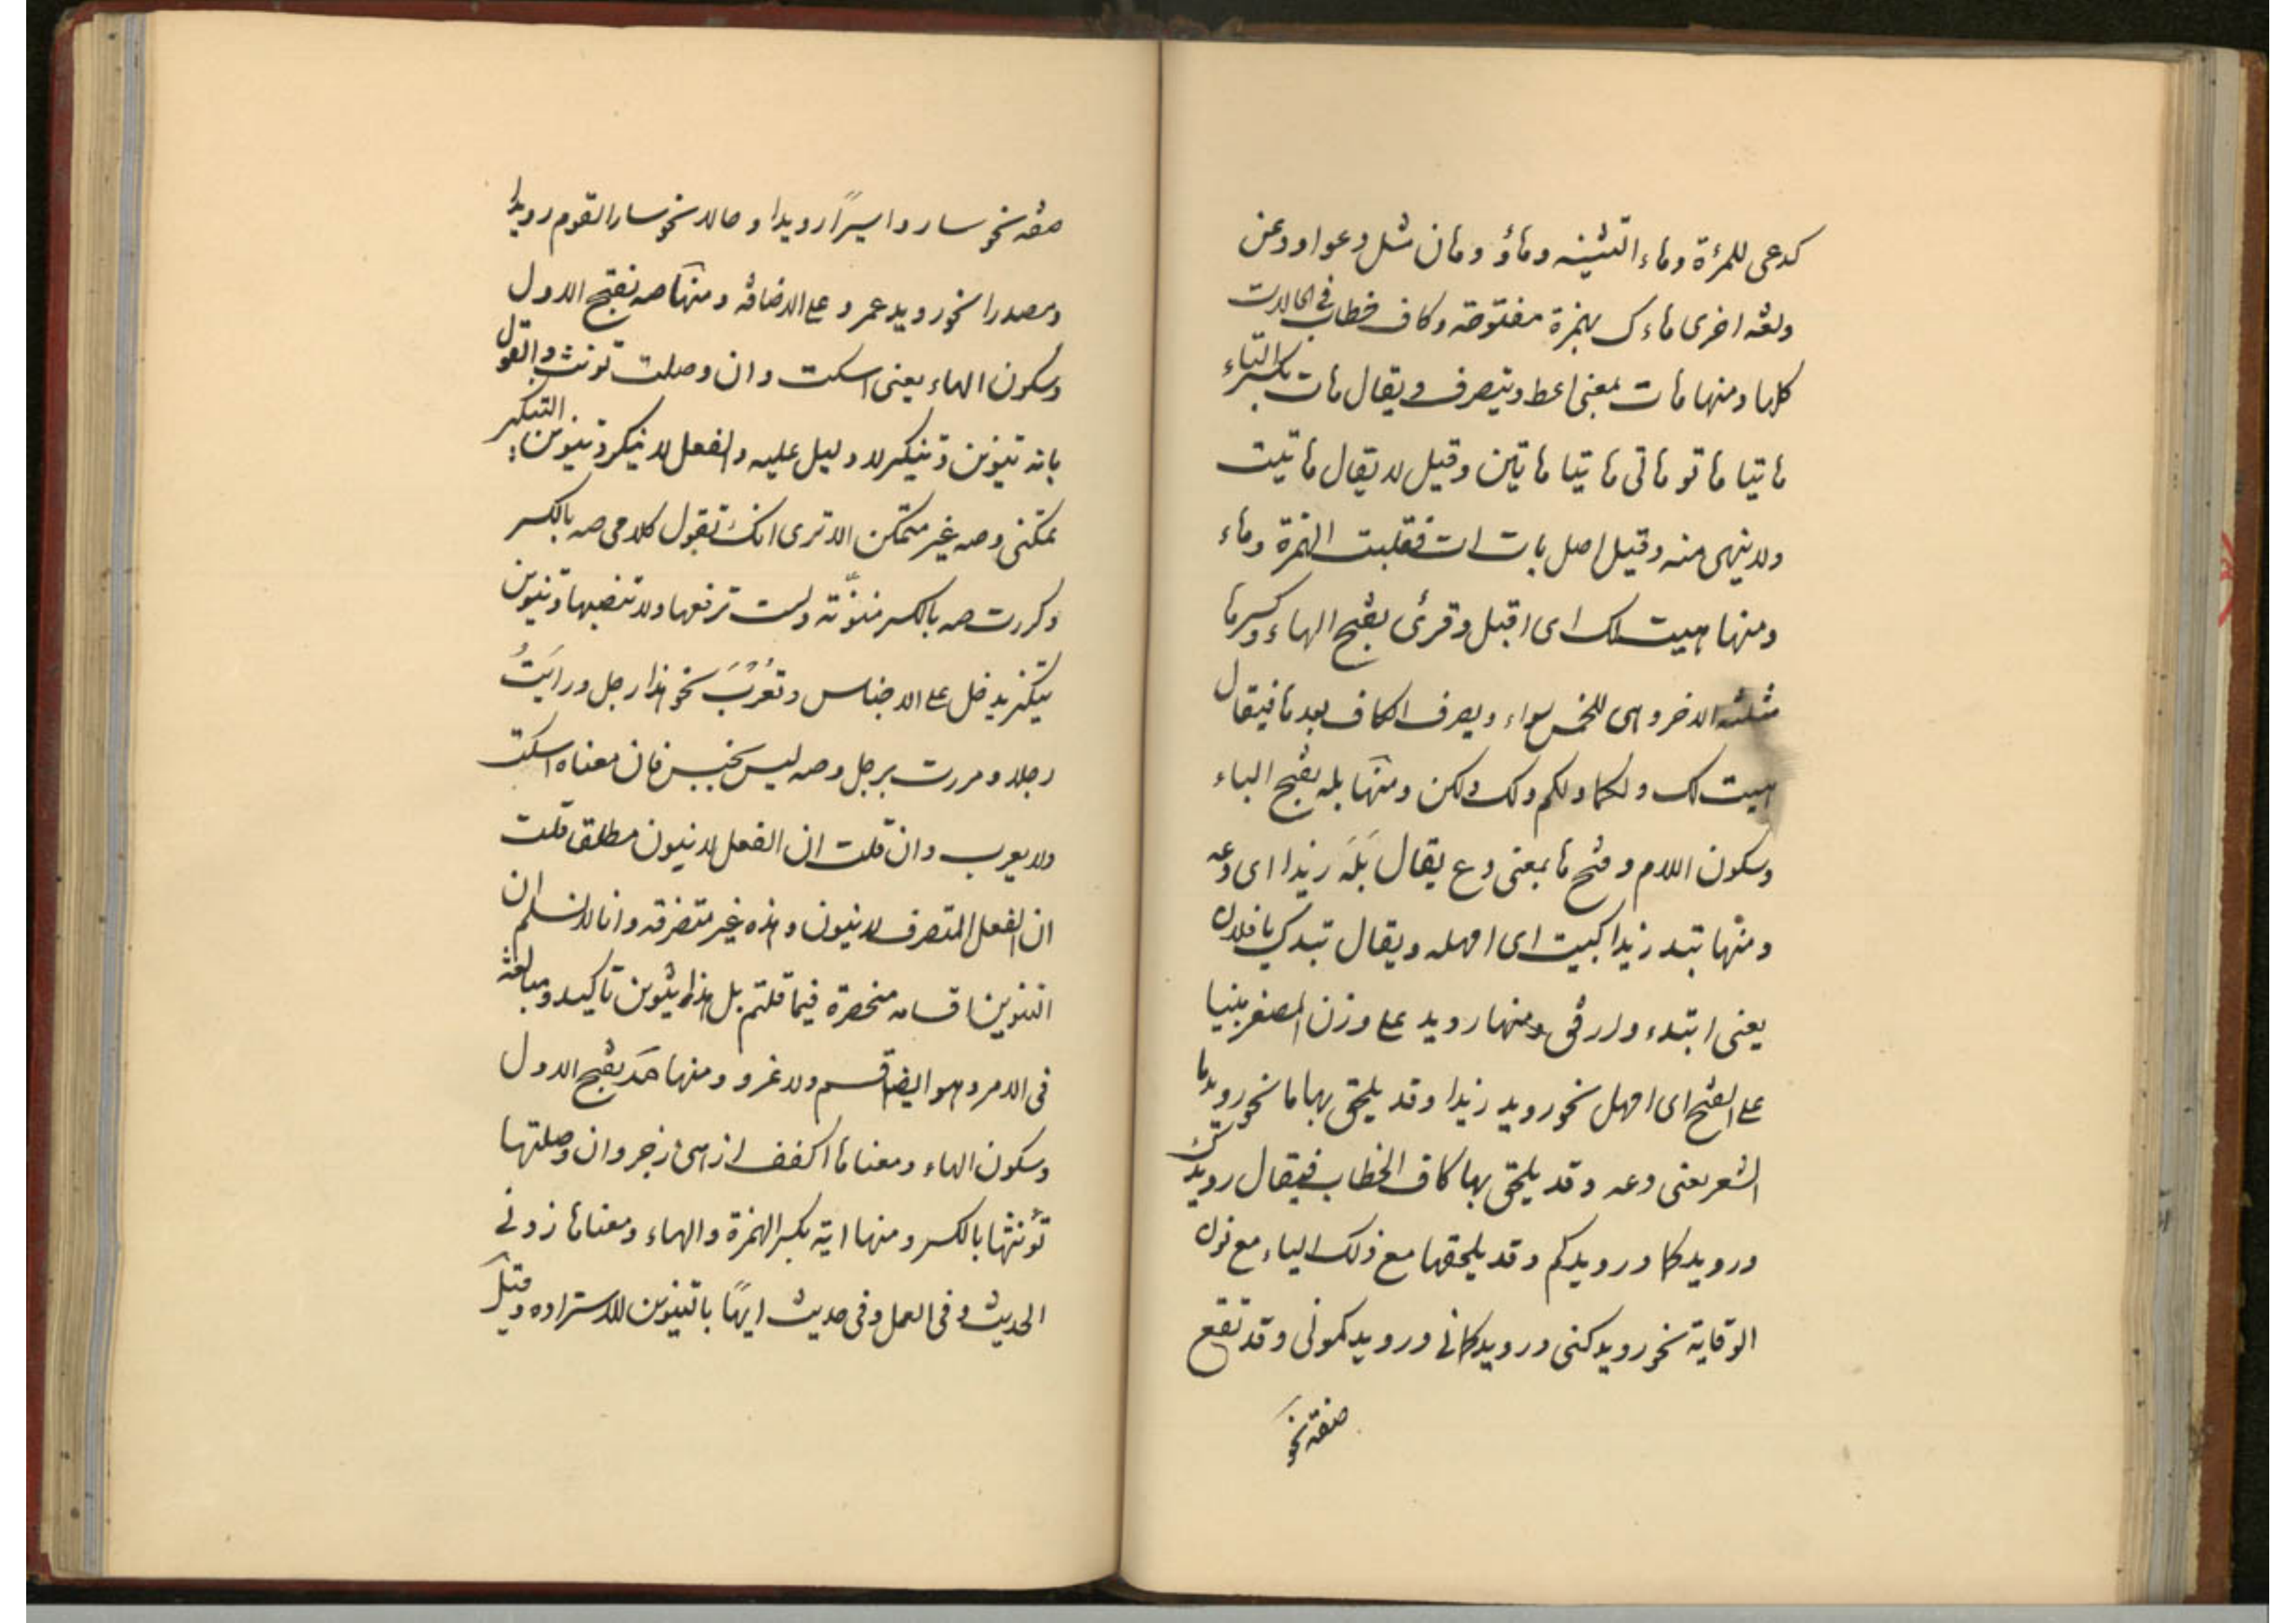 كدعى للمرءة وهاء التثنيه وهاؤ وهان مثل دعوا ودعن
ولغه اخرى هاءك بهمزة مفتوحه وكاف خطاب فى الحالات
كلها ومنها هات بمعنى اعط ويتصرف ويقال هات بكسر التاء
هاتيا هاتو هاتى هاتيا هاتين وقيل لا يقال هاتيت
ولا ينهى منه وقيل اصل هات ات فقلبت الهمزة وهاء
ومنها هيت لك اى اقبل وقرئ بفتح الهاء وكسرها
مثلثه الاخر وهى للخمس سواء ويصرف الكاف بعدها فيقال
هيت لك ولكما ولكم ولك ولكن ومنها بله بفتح الباء
وسكون اللام وفتح ها بمعنى دع يقال بَلَهَ زيدا اى دعه
ومنها تيد زيدا كبيت اى امهله ويقال تيدك يا فلان
يعنى ابتدء وارفق ومنها رويد على وزن المصغر مبنيا
على الفتح اى امهل نحو رويد زيدا وقد يلحق بها ما نحو رويدما
الشعر يعنى دعه وقد يلحق بها كاف الخطاب فيقال رويدك
ورويدكما ورويدكم وقد يلحقها مع ذلك الياء مع نون
الوقاية نحو رويدكنى ورويدكمانى ورويدكمونى وقد تقع
صفه نحو
صفه نحو ساروا سيرًا رويدا وحالا نحو سار القوم رويدا
ومصدرا نحو رويد عمرو على الاضافه ومنها صه بفتح الاول
وسكون الهاء يعنى اسكت وان وصلت تونث والقول
بانه تنوين وتنكير لا دليل عليه والفعل لا ينكر وتنوين التنكير
تمكنى وصه غير متمكن الا ترى انك تقول كلامى صه بالكسر
وكررت صه بالكسر منوّنه ولست ترفعها ولا تنصبها وتنوين
يتكنر يدخل على الاجناس وتعرب نحو هذا رجل ورايتُ
رجلا ومررت برجل وصه ليس بجنس فان معناه اسكت
ولا يعرب وان قلت ان الفعل لا ينون مطلق قلت
ان الفعل المتصرف لا ينون وهذه غير متصرفه وانا لا نسلم ان
التنوين اقسامه منحصرة فيما قلتم بل هذا تنوين تاكيد ومبالغه
فى الامر وهو ايضا قسم ولا غرو ومنها مَه بفتح الاول
وسكون الهاء ومعناها اكفف از اى زجر وان وصلتها
تؤنثها بالكسر ومنها ايه بكسر الهمزة والهاء ومعناها زدنى
الحديث وفى العمل وفى حديث ايهًا بالتنوين للاستزاده وقيل